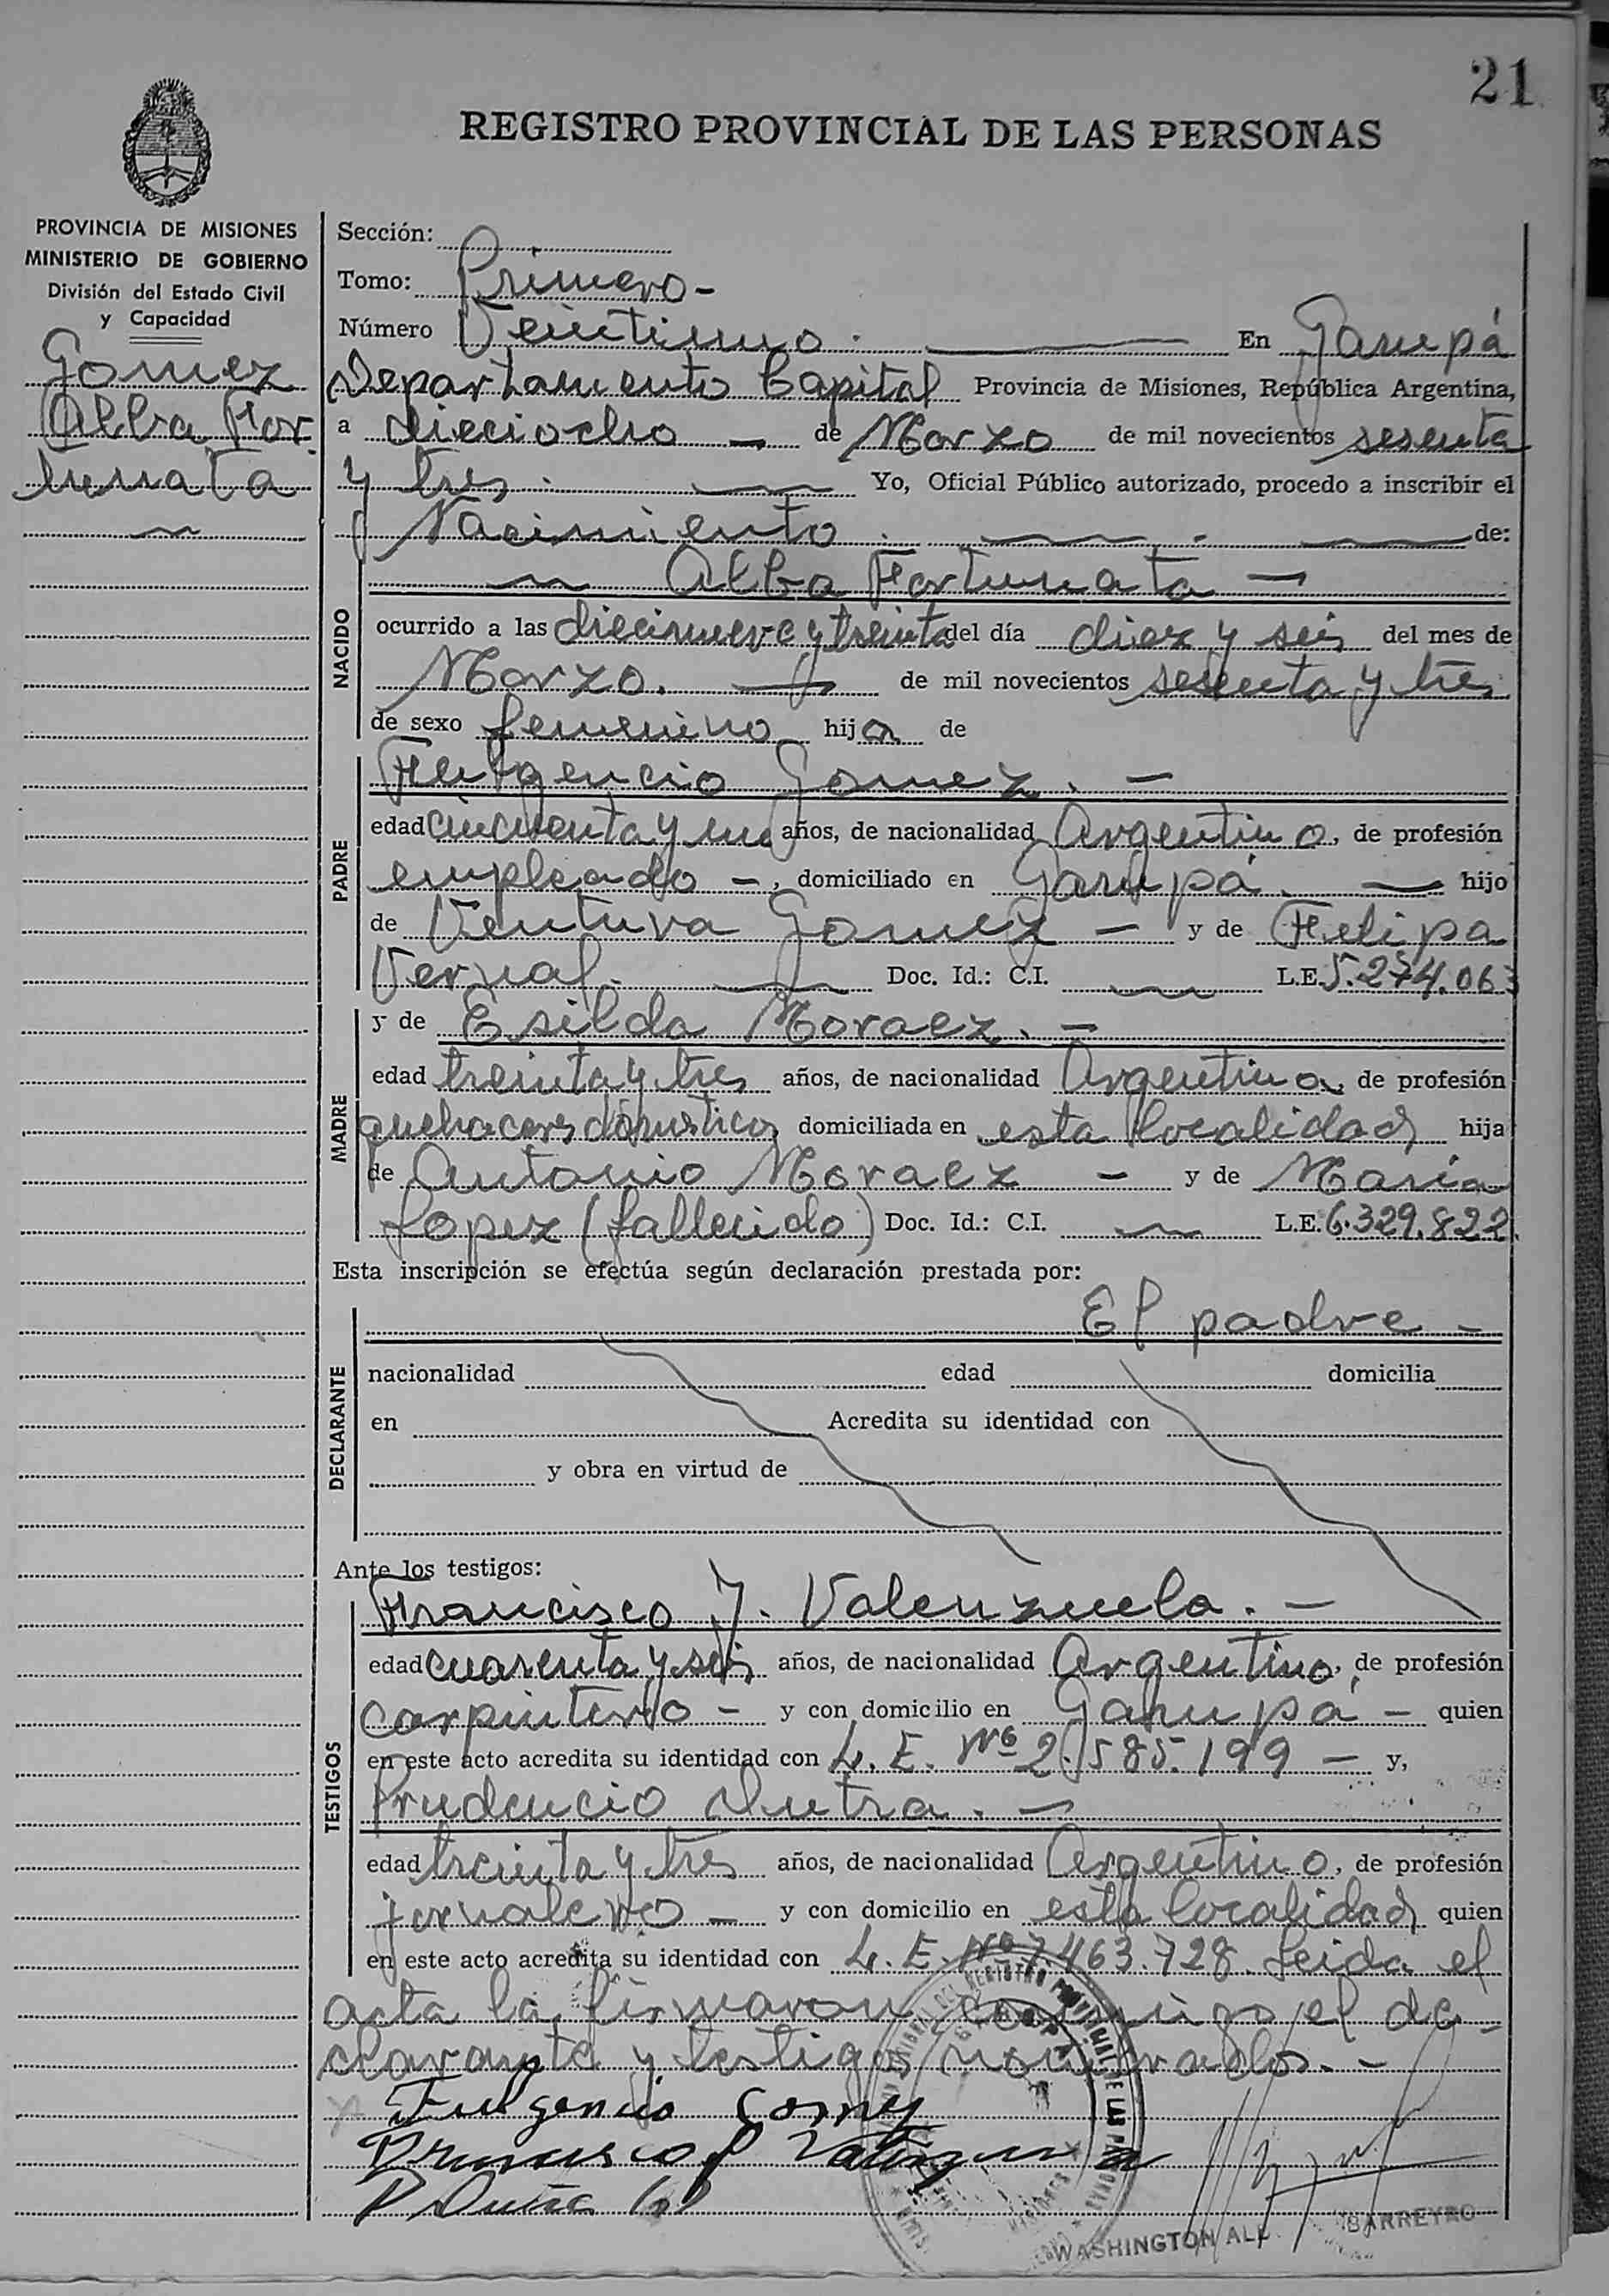 21
REGISTRO PROVINCIAL DE LAS PERSONAS
PROVINCIA DE MISIONES
MINISTERIO DE GOBIERNO
División del Estado Civil
y Capacidad
Gomez
Alba For
tunata
Sección:
Tomo: Primero -
Número Veintiuno. En Garupá
Departamento Capital Provincia de Misiones, República Argentina,
a dieciocho - de Marzo de mil novecientos sesenta
y tres. Yo, Oficial Público autorizado, procedo a inscribir el
Nacimiento. de:
Alba Fortunata -
NACIDO
ocurrido a las diecinueve y treinta del día diez y seis del mes de
Marzo. de mil novecientos sesenta y tres
de sexo femenino hija de
PADRE
Fulgencio Gomez. -
edad cincuenta y un años, de nacionalidad Argentino, de profesión
empleado -, domiciliado en Garupá. hijo
de Ventura Gomez - y de Felipa
Vernal. Doc. Id.: C.I. L.E. 5.274.063
MADRE
y de Esilda Moraez. -
edad treinta y tres años, de nacionalidad Argentina, de profesión
quehaceres domesticos domiciliada en esta localidad hija
de Antonio Moraez - y de Maria
Lopez (fallecido) Doc. Id.: C.I. L.E. 6.329.822.
Esta inscripción se efectúa según declaración prestada por:
El padre -
DECLARANTE
nacionalidad edad domicilia
en Acredita su identidad con
y obra en virtud de
Ante los testigos:
TESTIGOS
Francisco J. Valenzuela. -
edad cuarenta y seis años, de nacionalidad Argentino, de profesión
carpintero - y con domicilio en Garupá - quien
en este acto acredita su identidad con L. E. Nº 2.585.199 - y,
Prudencio Dutra. -
edad treinta y tres años, de nacionalidad Argentino, de profesión
jornalero - y con domicilio en esta localidad quien
en este acto acredita su identidad con L. E. Nº 7.463.728. Leida el
acta la firmaron conmigo el de-
clarante y testigos nombrados. -
Fulgencio Gomez
Francisco J Valenzuela
WASHINGTON BARREYRO